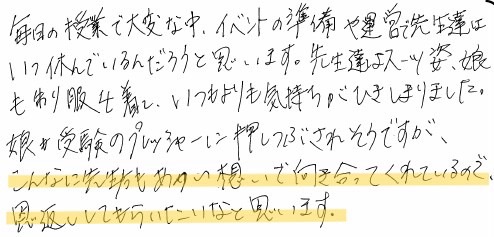 毎日の授業で大変な中、イベントの準備や運営で先生達は
いつ休んでいるんだろうと思います。先生達はスーツ姿、娘
も制服を着て、いつもよりも気持ちがひきしまりました。
娘が受験のプレッシャーに押しつぶされそうですが、
こんなに先生方もあつい想いで向き合ってくれているので、
恩返ししてもらいたいなと思います。